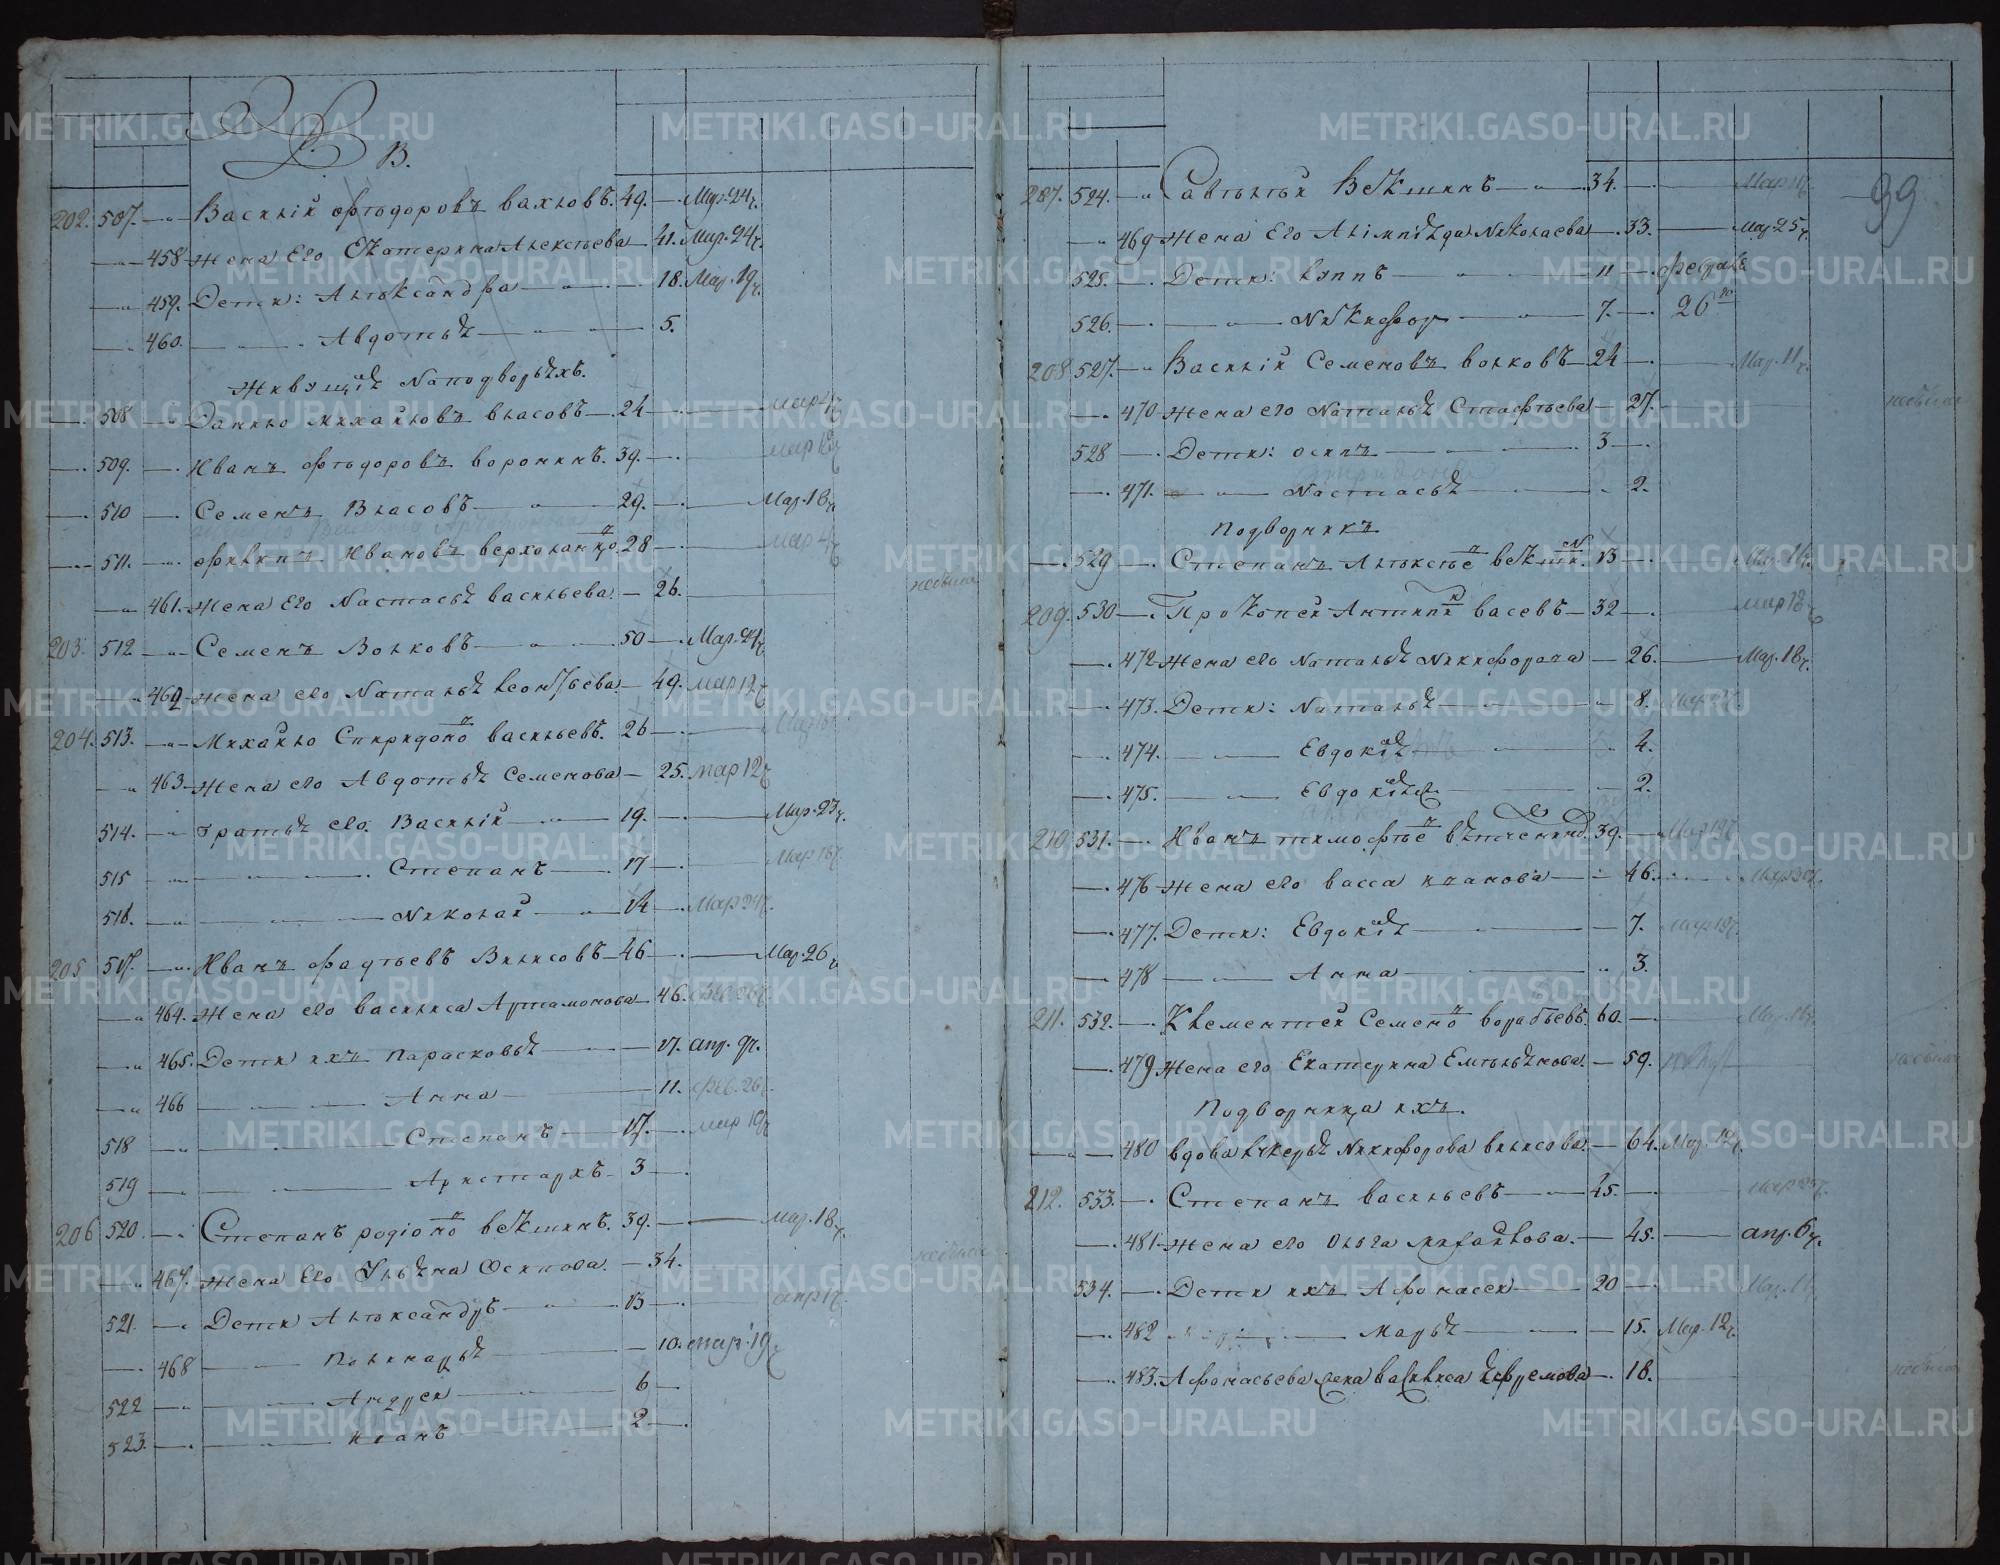 В.
202. 507. Василій Ѳѣодоровъ Вахловъ. 49. Мар. 24 ч.
458 Жена Его Екатерина Алексѣева 41. Мар. 24 ч.
459. Дети: Александра 18. Мар. 19 ч.
460. Авдотья 5.
Живущія на подворьяхъ.
508 Данило Михайловъ Власовъ 24 мар 4 ч
509. Иванъ Ѳѣодоровъ Воронинъ. 39. мар 18 ч
510 Семенъ Власовъ 29. Мар. 18 ч
511. Филипъ Ивановъ 28 мар 4 ч
461. Жена Его Настасья Васильева 26. небыла
203. 512 Семенъ Волковъ 50 Мар. 24 ч
462 Жена его Наталья Леонтьева 49. мар 12 ч
204. 513. Михайло Спиридоно Васильевъ. 26
463. Жена его Авдотья Семенова 25. мар 12 ч
514. братья его. Василій 19. Мар. 23 ч.
515 Степанъ 17 Мар 18 ч.
516. Николай 14 Мар 24 ч.
205 517. Иванъ Фадѣевъ Вилисовъ 46 Мар. 26 ч
464. Жена его Василиса Артамонова 46. Фев. 26 ч.
465. Дети ихъ Парасковья 17. апр. 9 ч.
466 Анна 11. фев. 26 ч.
518 Степанъ 17. мар 19 ч
519 Аристархъ 3
206 520. Степанъ родіоно Векшинъ. 39. Мар. 18 ч.
467. Жена Его Ульяна Осипова. 34. небыла
521. Дети Александръ 13 апр 1 ч.
468 Пелагея 10. мар. 19 ч
522 Андреи 6
523. Иванъ 2
99
207. 524. Савѣлѣй Векшинъ 34. Мар 18 ч.
469 Жена Его Алімпіяда Николаева 33. Мар. 25 ч.
525. Дети: Лупъ 11 февраля
526. Никифор 7. 26 го
208 527. Василій Семеновъ Волковъ 24 Мар. 11 ч.
470 Жена его Наталья Стафѣева 27. небыла
528 Дети: осипъ 3
471. Настасья 2.
Подворникъ
529 Степанъ Алексѣе Векшин. 13 Мар. 18 ч.
209. 530 Прокопеи Антипи Васевъ 32 мар 18 ч
472 Жена его Наталья Никифорова 26. Мар. 18 ч.
473. Дети: Наталья 8.
474. Евдокія 4.
475. Евдокія 2.
210 531. Иванъ тимофѣе 39. Мар 19 ч.
476 Жена его Васса иванова 46.
477. Дети: Евдокія 7. мар 19 ч.
478 Анна 3.
211. 532. Клементеи Семено Воробьевъ. 60. Мар. 18 ч.
479 Жена его Екатерина Емельянова. 59. небыла
Подворница ихъ.
480 Вдова Никифорова Вилисова. 64. Мар. 12 ч.
212. 533. Степанъ Васильевъ 45.
481 Жена его Ольга Михайлова. 45. апр. 6 ч.
534. Дети ихъ Афонасеи 20 Мар. 11 ч.
482 Марья 15. Мар. 12 ч.
483. Афонасьева жена Василиса Ефремова 18. небыла
METRIKI.GASO-URAL.RU